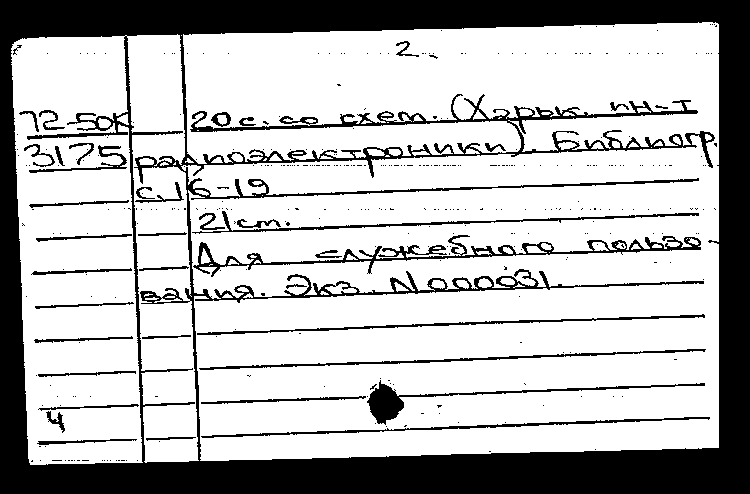 2.
72-50К 20 с. со схем. (Харьк. ин-т
3175 радиоэлектроники). Библиогр.
с. 16-19
21 см.
Для служебного пользо-
вания. Экз. N 000031.
4